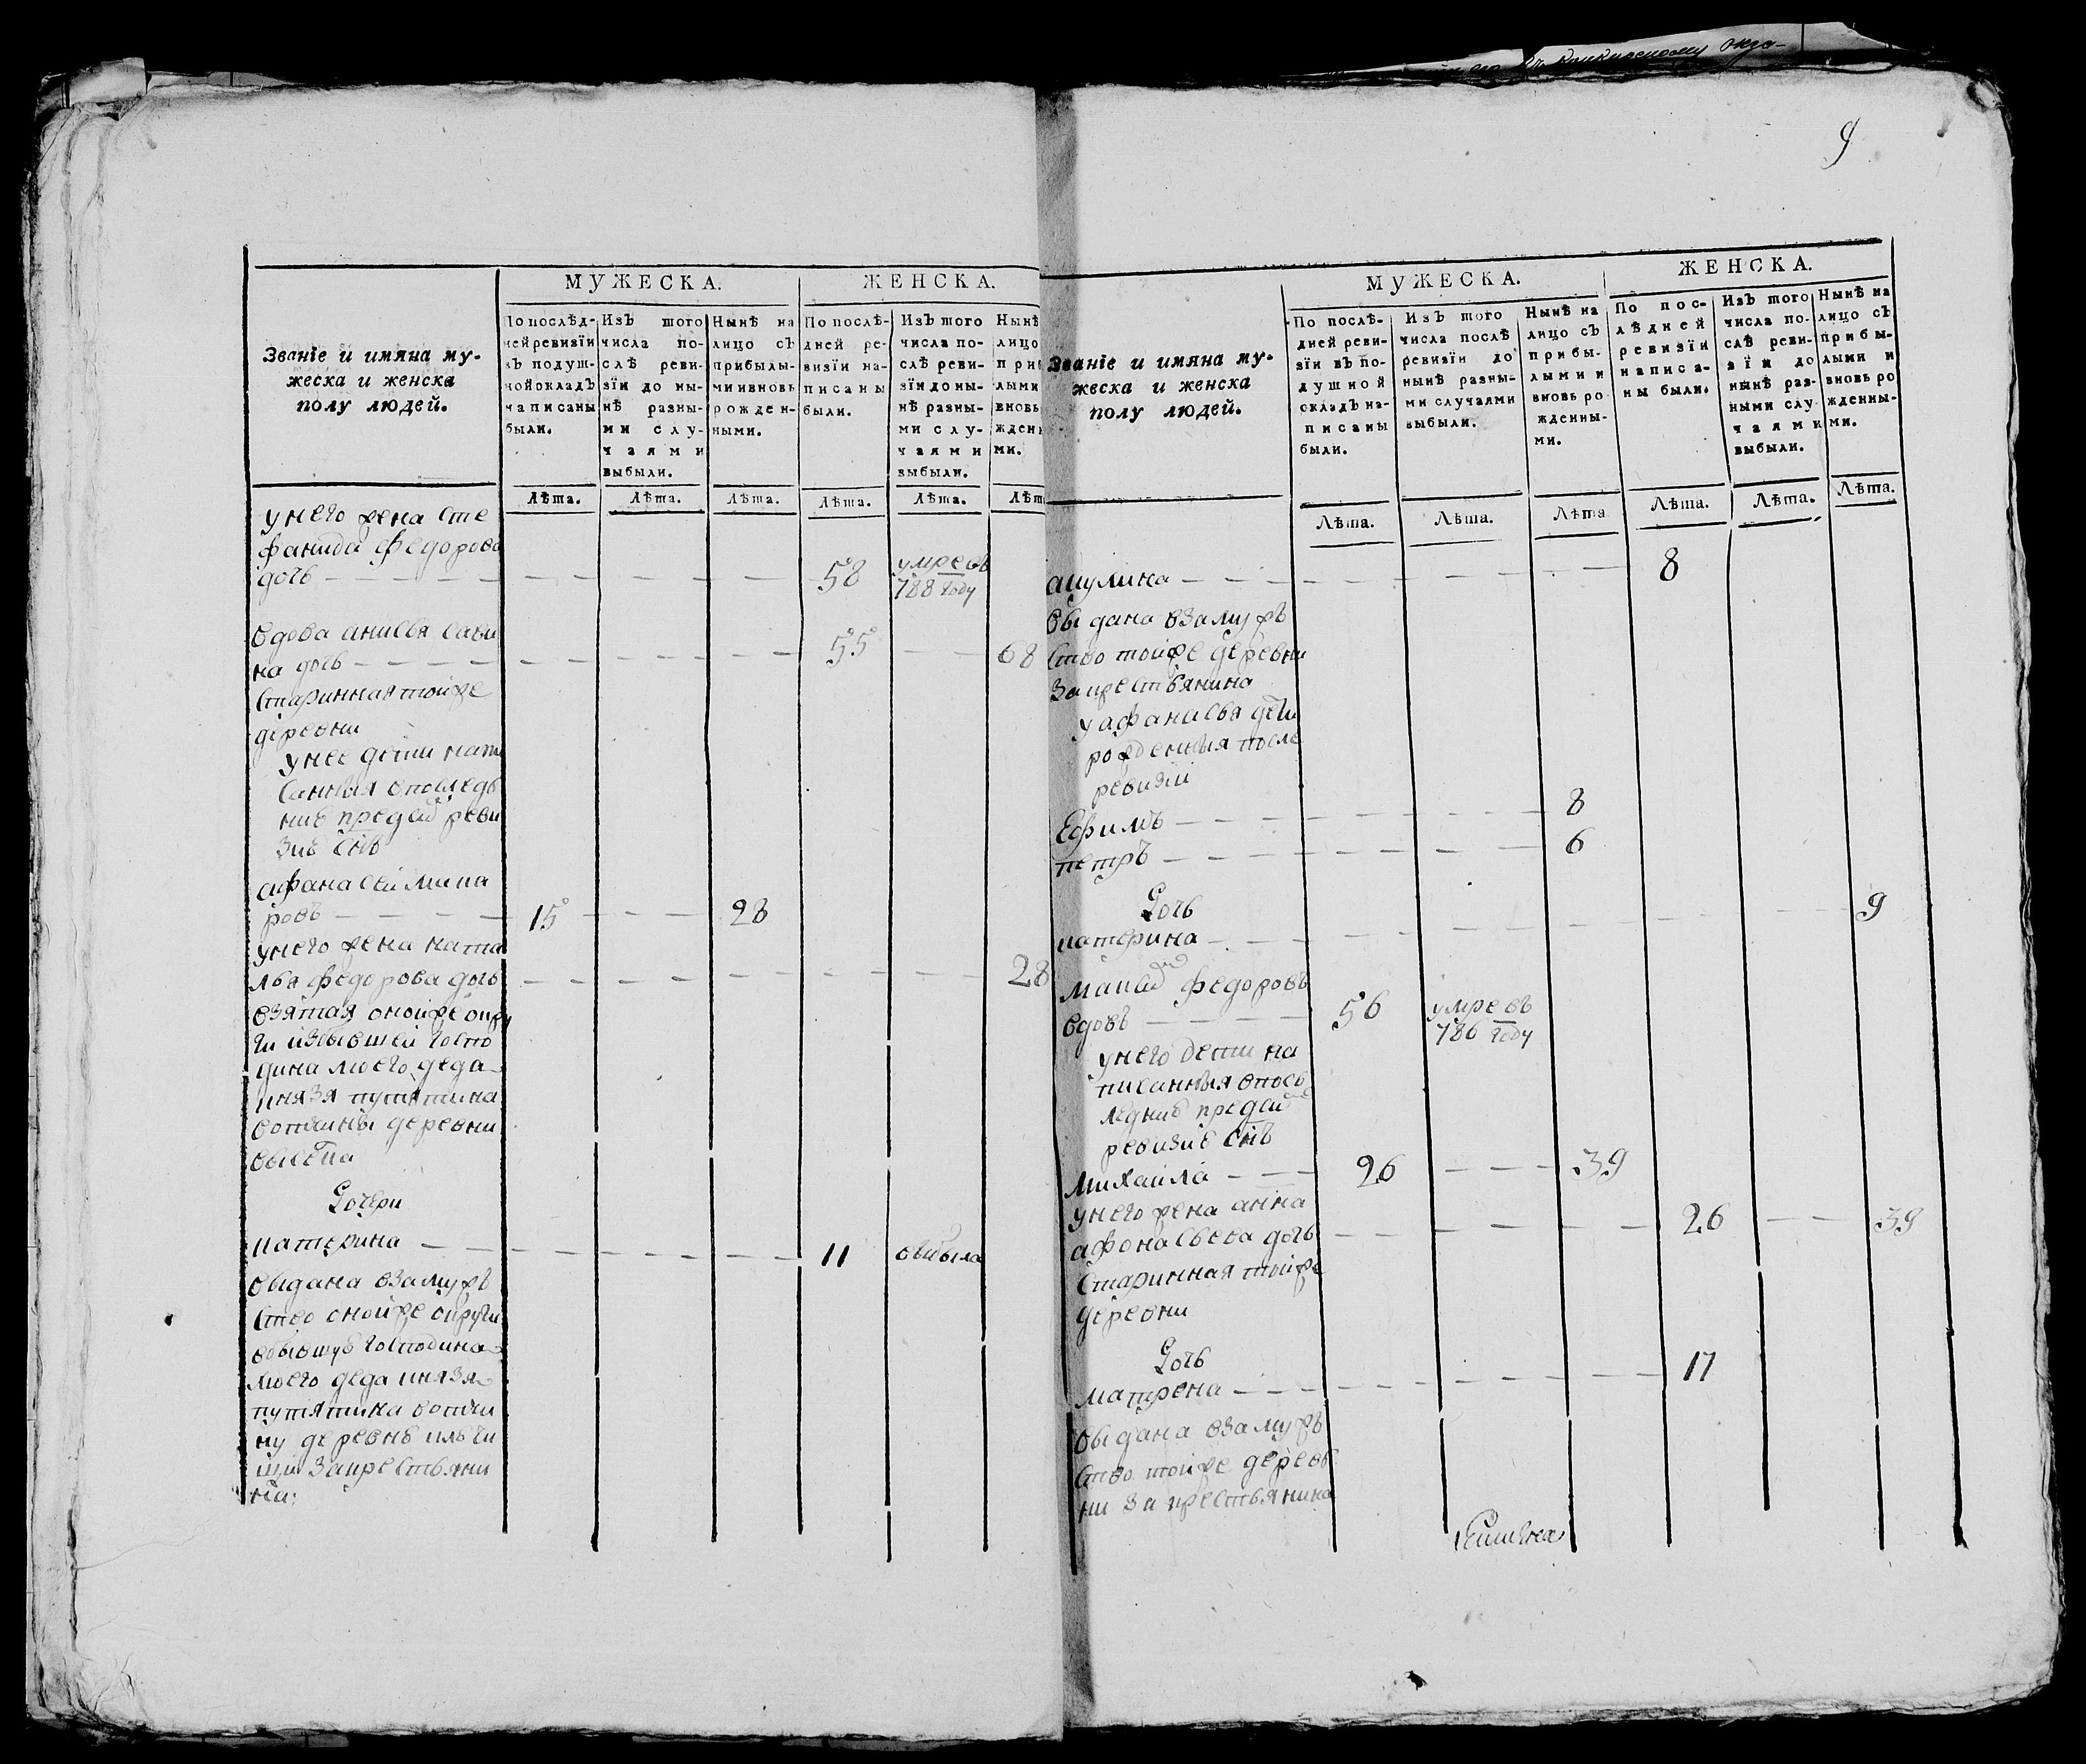 9
МУЖЕСКА.
ЖЕНСКА.
Званіе и имяна му-
жеска и женска
полу людей.
По послѣд-
ней ревизіи
въ подуш-
ной окладъ
написаны
были.
Изъ того
числа по-
слѣ реви-
зіи до ны-
нѣ разны-
ми слу-
чаями
выбыли.
Нынѣ на
лицо съ
прибылы-
ми и вновь
рожден-
ными.
По послѣ-
дней ре-
визіи на-
писаны
были.
Изъ того
числа по-
слѣ реви-
зіи до ны-
нѣ разны-
ми слу-
чаями
выбыли.
Нынѣ
лицо
при
лыми
вновь
жден
ми.
Лѣта. Лѣта. Лѣта. Лѣта. Лѣта. Лѣт
у него жена сте
фанида федорова
дочь 58 умре въ
788 году
вдова анисья сави
на дочь 55 68
старинная тойже
деревни
у нее дети напи
санныя впоследь
ние пред сей реви
зие снъ
афанасеи мака
ровъ 15 28
у него жена ната
лья федорова дочь 28
взятая онойже окру
ги избывшей госпо
дина моего деда
князя путятина
вотчины деревни
Дочери
катерина 11 выбыла
выдана взамуж
ство онойже округи
вбывшую господина
моего деда князя
путятина вотчи
ну деревне
за крестьяни
на.
МУЖЕСКА.
ЖЕНСКА.
Званіе и имяна му-
жеска и женска
полу людей.
По послѣ-
дней реви-
зіи въ по-
душной
окладъ на-
писаны
были.
Изъ того
числа послѣ
ревизіи до
нынѣ разны-
ми случаями
выбыли.
Нынѣ на
лицо съ
прибы-
лыми и
вновь ро
жденны-
ми.
По пос-
лѣдней
ревизіи
написа-
ны были.
Изъ того
числа по-
слѣ реви-
зіи до
нынѣ раз-
ными слу
чаями
выбыли.
Нынѣ на
лицо съ
прибы-
лыми и
вновь ро
жденны-
ми.
Лѣта. Лѣта. Лѣта Лѣта. Лѣта. Лѣта.
акулина 8
выдана взамуж
ство тойже деревни
за крестьянина
у афанасья дети
рожденныя после
ревизии
Ефимъ 8
петръ 6
Дочь
катерина 9
федоровъ
вдовъ 56 умре въ
786 году
у него дети на
писанныя впось
ледние пред сей
ревизие снъ
михаила 26 39
у него жена анна
афонасьева дочь 26 39
старинная тойже
деревни
Дочь
матрена 17
выдана взамуж
ство тойже дерев
ни за крестьянина